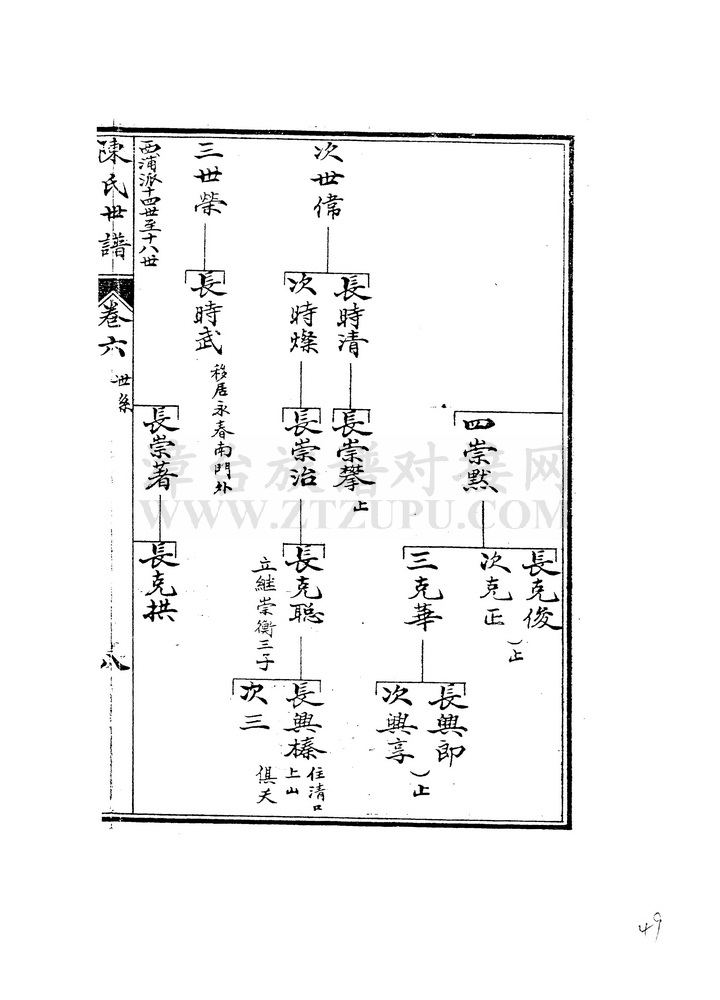 四崇默
長克俊
次克正
)止
三克華
長興郎
次興享
)止
次世偉
長時清
長崇攀
止
次時燦
長崇治
長克聪
立继崇衡三子
長興榛
住清口
上山
次三
俱夭
三世榮
長時武
移居永春南門外
長崇著
長克拱
西浦派十四世至十八世
陳氏世譜
卷六
世系
八
漳台族谱对接网
WWW.ZTZUPU.COM
49